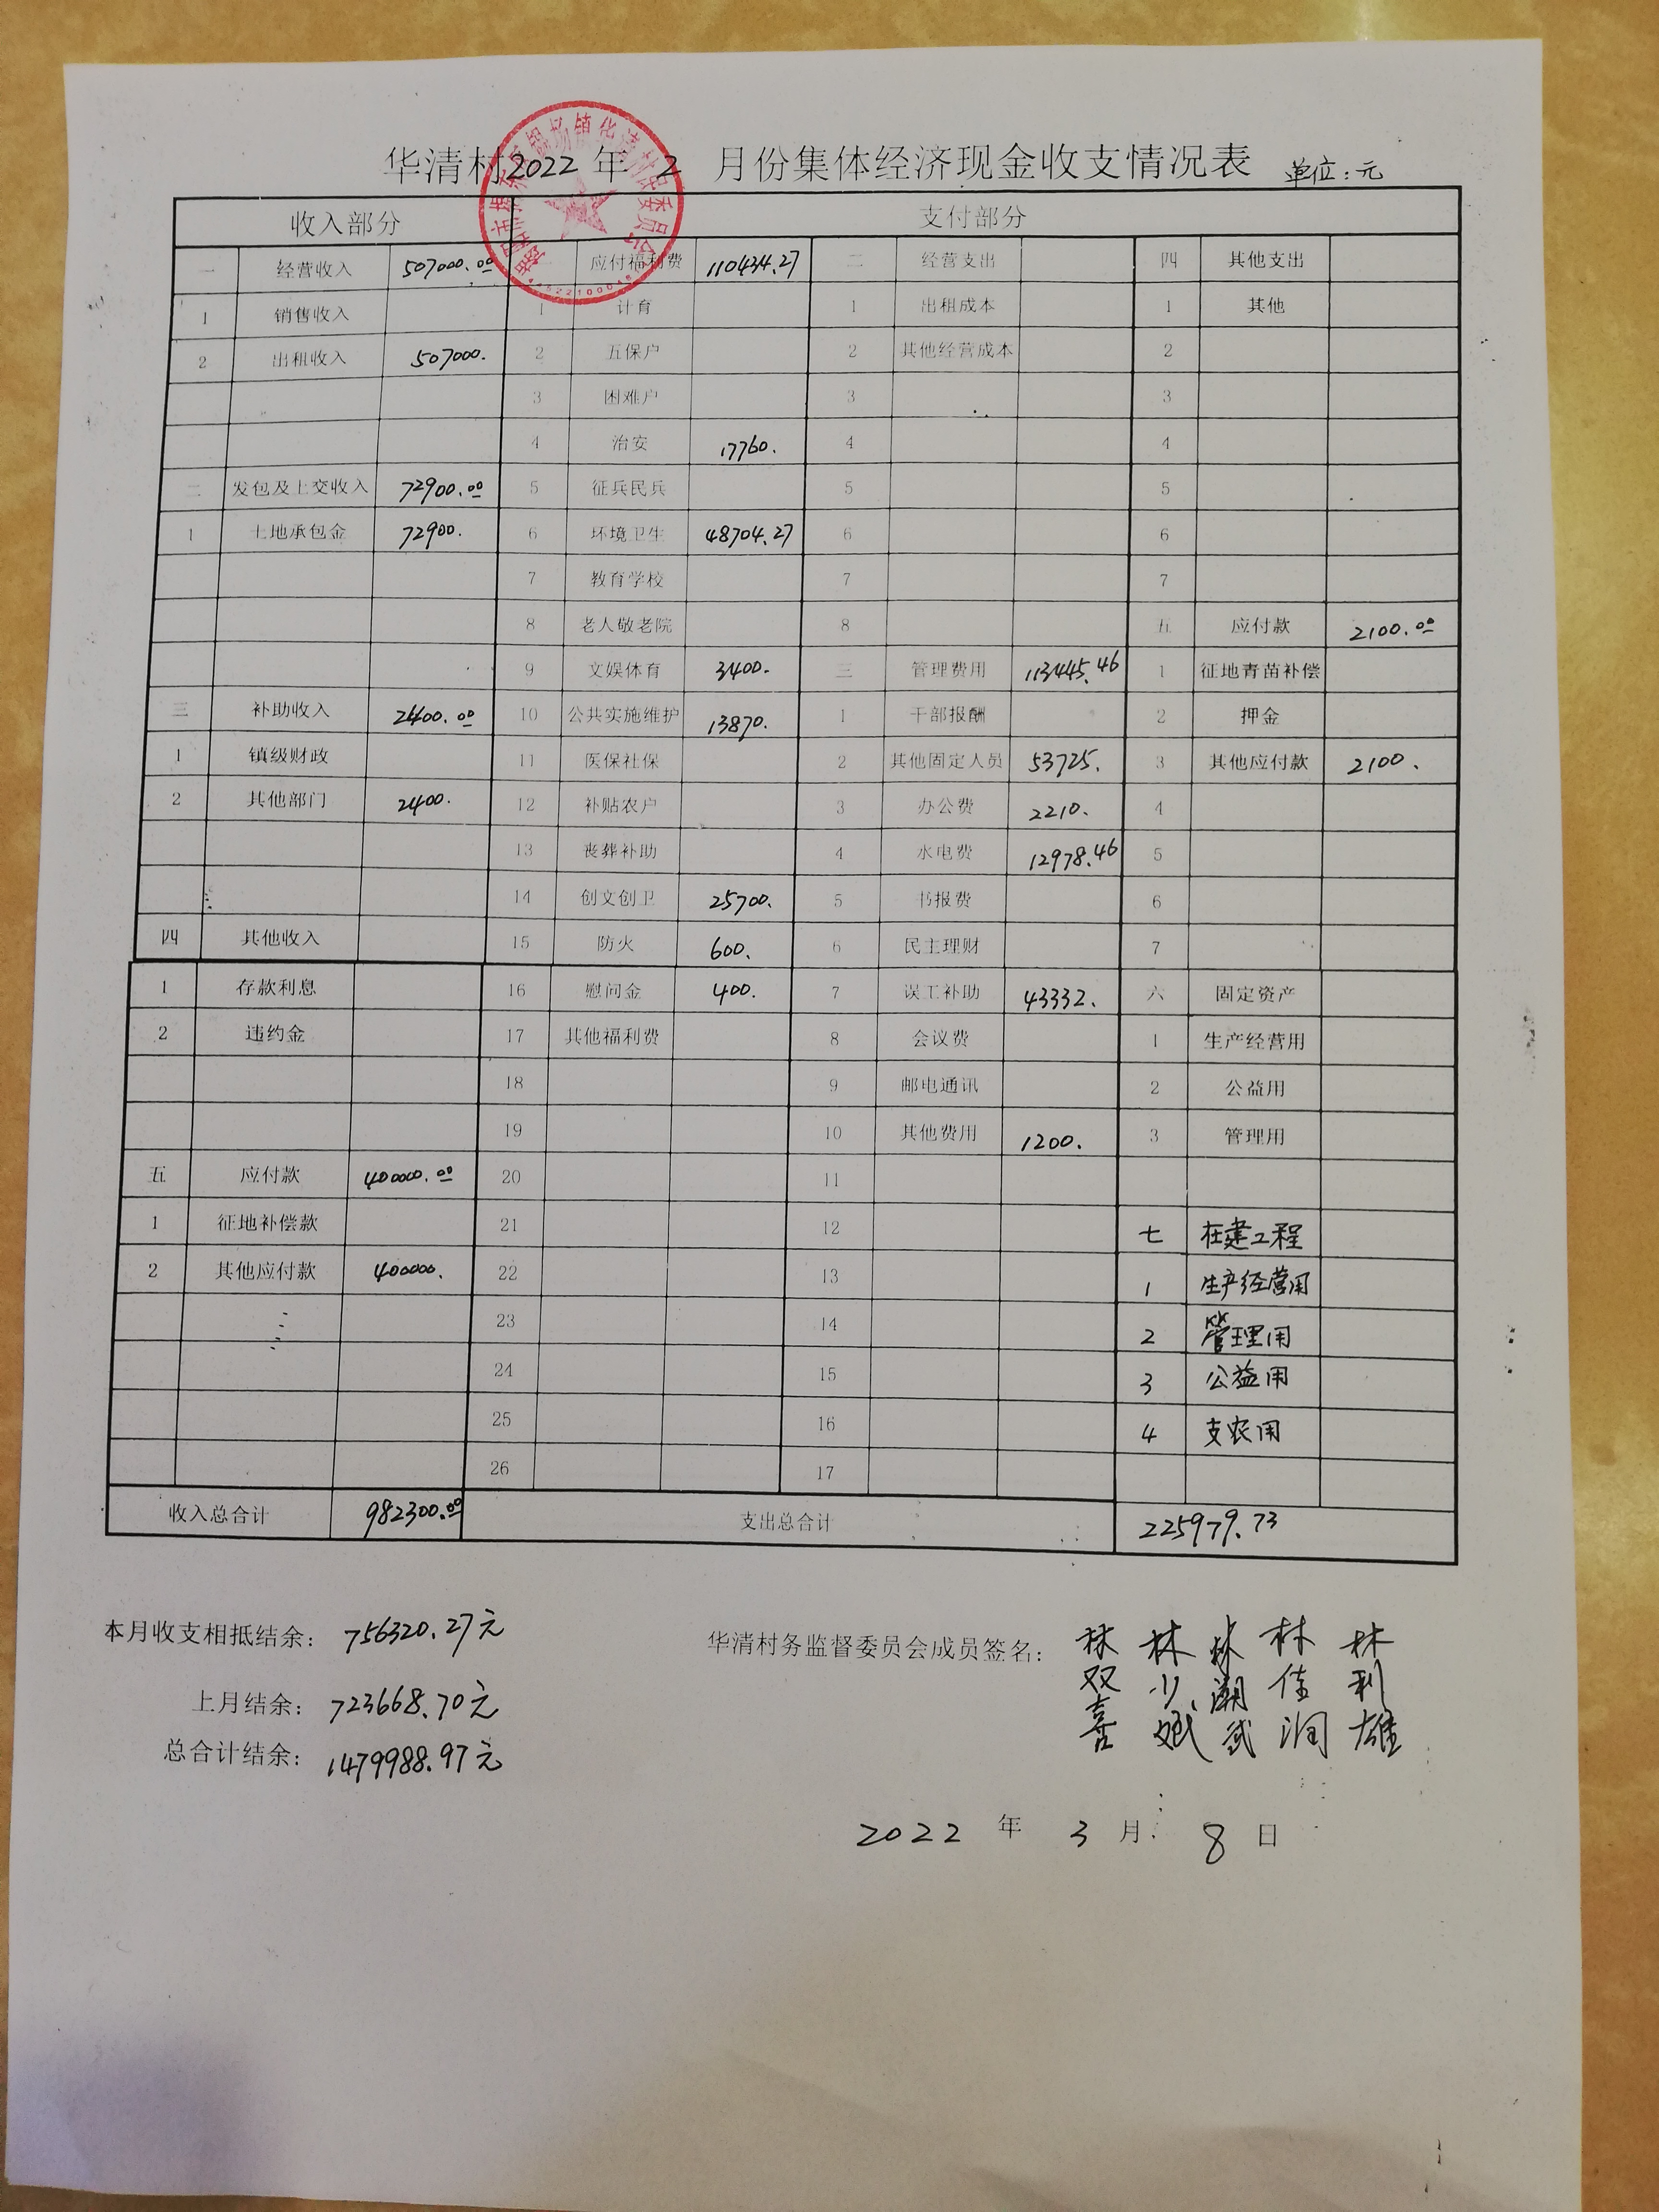 华清村2022年 2 月份集体经济现金收支情况表 单位:元
收入部分 支付部分
一 经营收入 507000.00 应付福利费 110434.27 二 经营支出 四 其他支出
1 销售收入 1 计育 1 出租成本 1 其他
2 出租收入 507000. 2 五保户 2 其他经营成本 2
3 困难户 3 3
4 治安 17760. 4 4
二 发包及上交收入 72900.00 5 征兵民兵 5 5
1 土地承包金 72900. 6 环境卫生 48704.27 6 6
7 教育学校 7 7
8 老人敬老院 8 五 应付款 2100.00
9 文娱体育 3400. 三 管理费用 113445.46 1 征地青苗补偿
三 补助收入 2400.00 10 公共实施维护 13870. 1 干部报酬 2 押金
1 镇级财政 11 医保社保 2 其他固定人员 53725. 3 其他应付款 2100.
2 其他部门 2400. 12 补贴农户 3 办公费 2210. 4
13 丧葬补助 4 水电费 12978.46 5
14 创文创卫 25700. 5 书报费 6
四 其他收入 15 防火 600. 6 民主理财 7
1 存款利息 16 慰问金 400. 7 误工补助 43332. 六 固定资产
2 违约金 17 其他福利费 8 会议费 1 生产经营用
18 9 邮电通讯 2 公益用
19 10 其他费用 1200. 3 管理用
五 应付款 400000.00 20 11
1 征地补偿款 21 12 七 在建工程
2 其他应付款 400000. 22 13 1 生产经营用
23 14 2 管理用
24 15 3 公益用
25 16 4 支农用
26 17
收入总合计 982300.00 支出总合计 225979.73
本月收支相抵结余: 756320.27元 华清村务监督委员会成员签名: 林双喜 林少斌 林潮武 林佳润 林利雄
上月结余: 723668.70元
总合计结余: 1479988.97元
2022 年 3 月 8 日